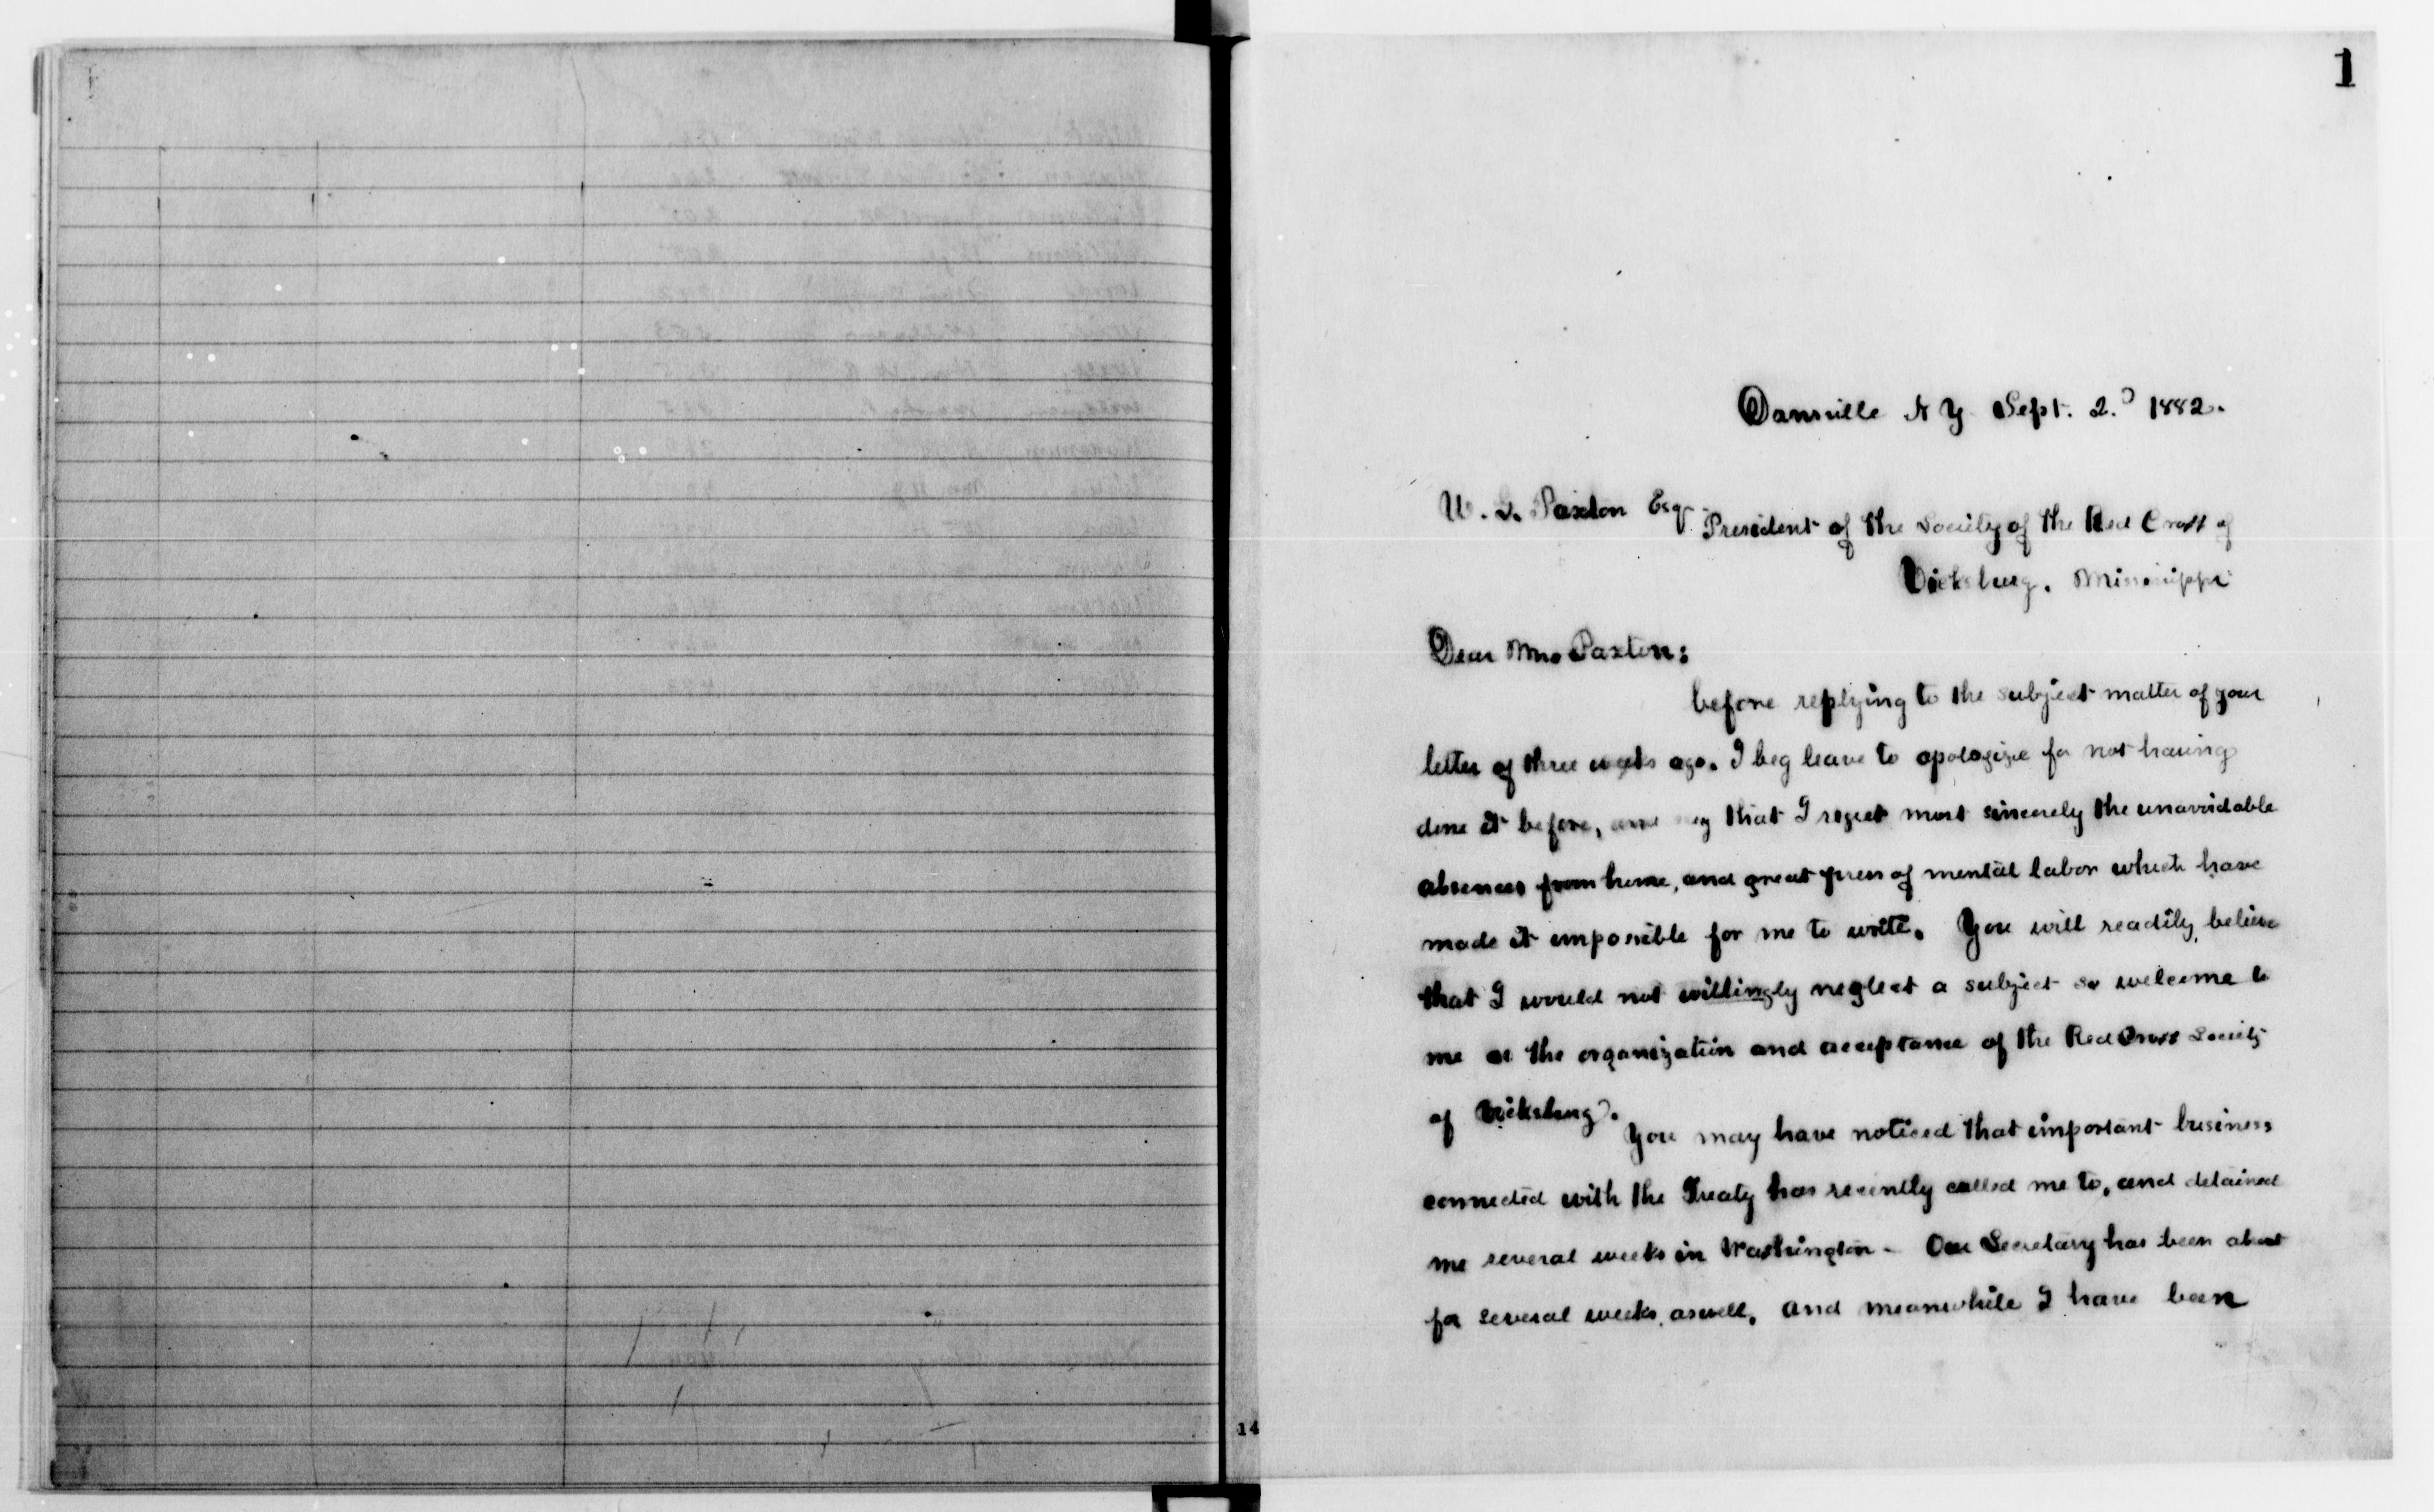 1
Dansville N Y Sept. 2. 1882.
W. L. Paxton Esq.
President of the Society of the Red Cross of
Vicksburg. Mississippi
Dear Mr Paxton:
before replying to the subject matter of your
letter of three weeks ago. I beg leave to apologize for not having
done it before, and that I regret most sincerely the unavoidable
absences from home, and great press of mental labor which have
made it impossible for me to write. You will readily believe
that I would not willingly neglect a subject so welcome to
me as the organization and acceptance of the Red Cross Society
of Vicksburg.
You may have noticed that important business
connected with the Treaty has recently called me to, and detained
me several weeks in Washington - Our Secretary has been absent
for several weeks, as well, and meanwhile I have been
14